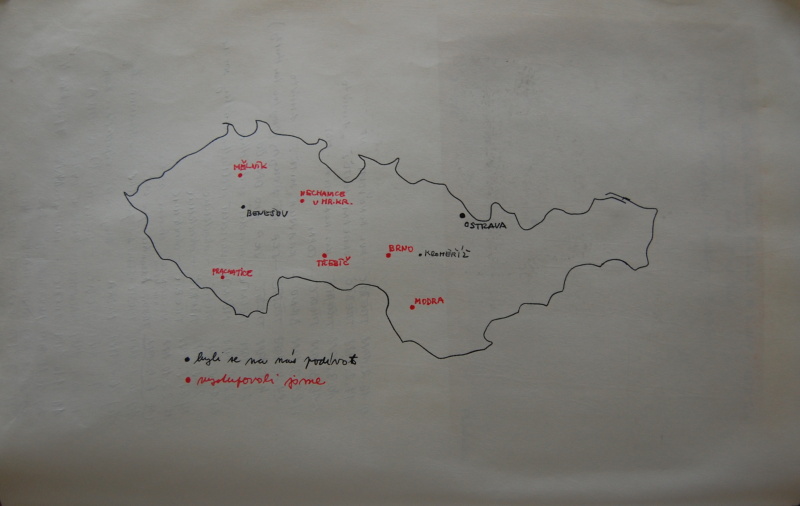 MĚLNÍK
NECHANICE
U HR.KR.
BENEŠOV
OSTRAVA
BRNO
KROMĚŘÍŽ
TŘEBÍČ
PRACHATICE
MODRA
byli se na nás podívat
vystupovali jsme